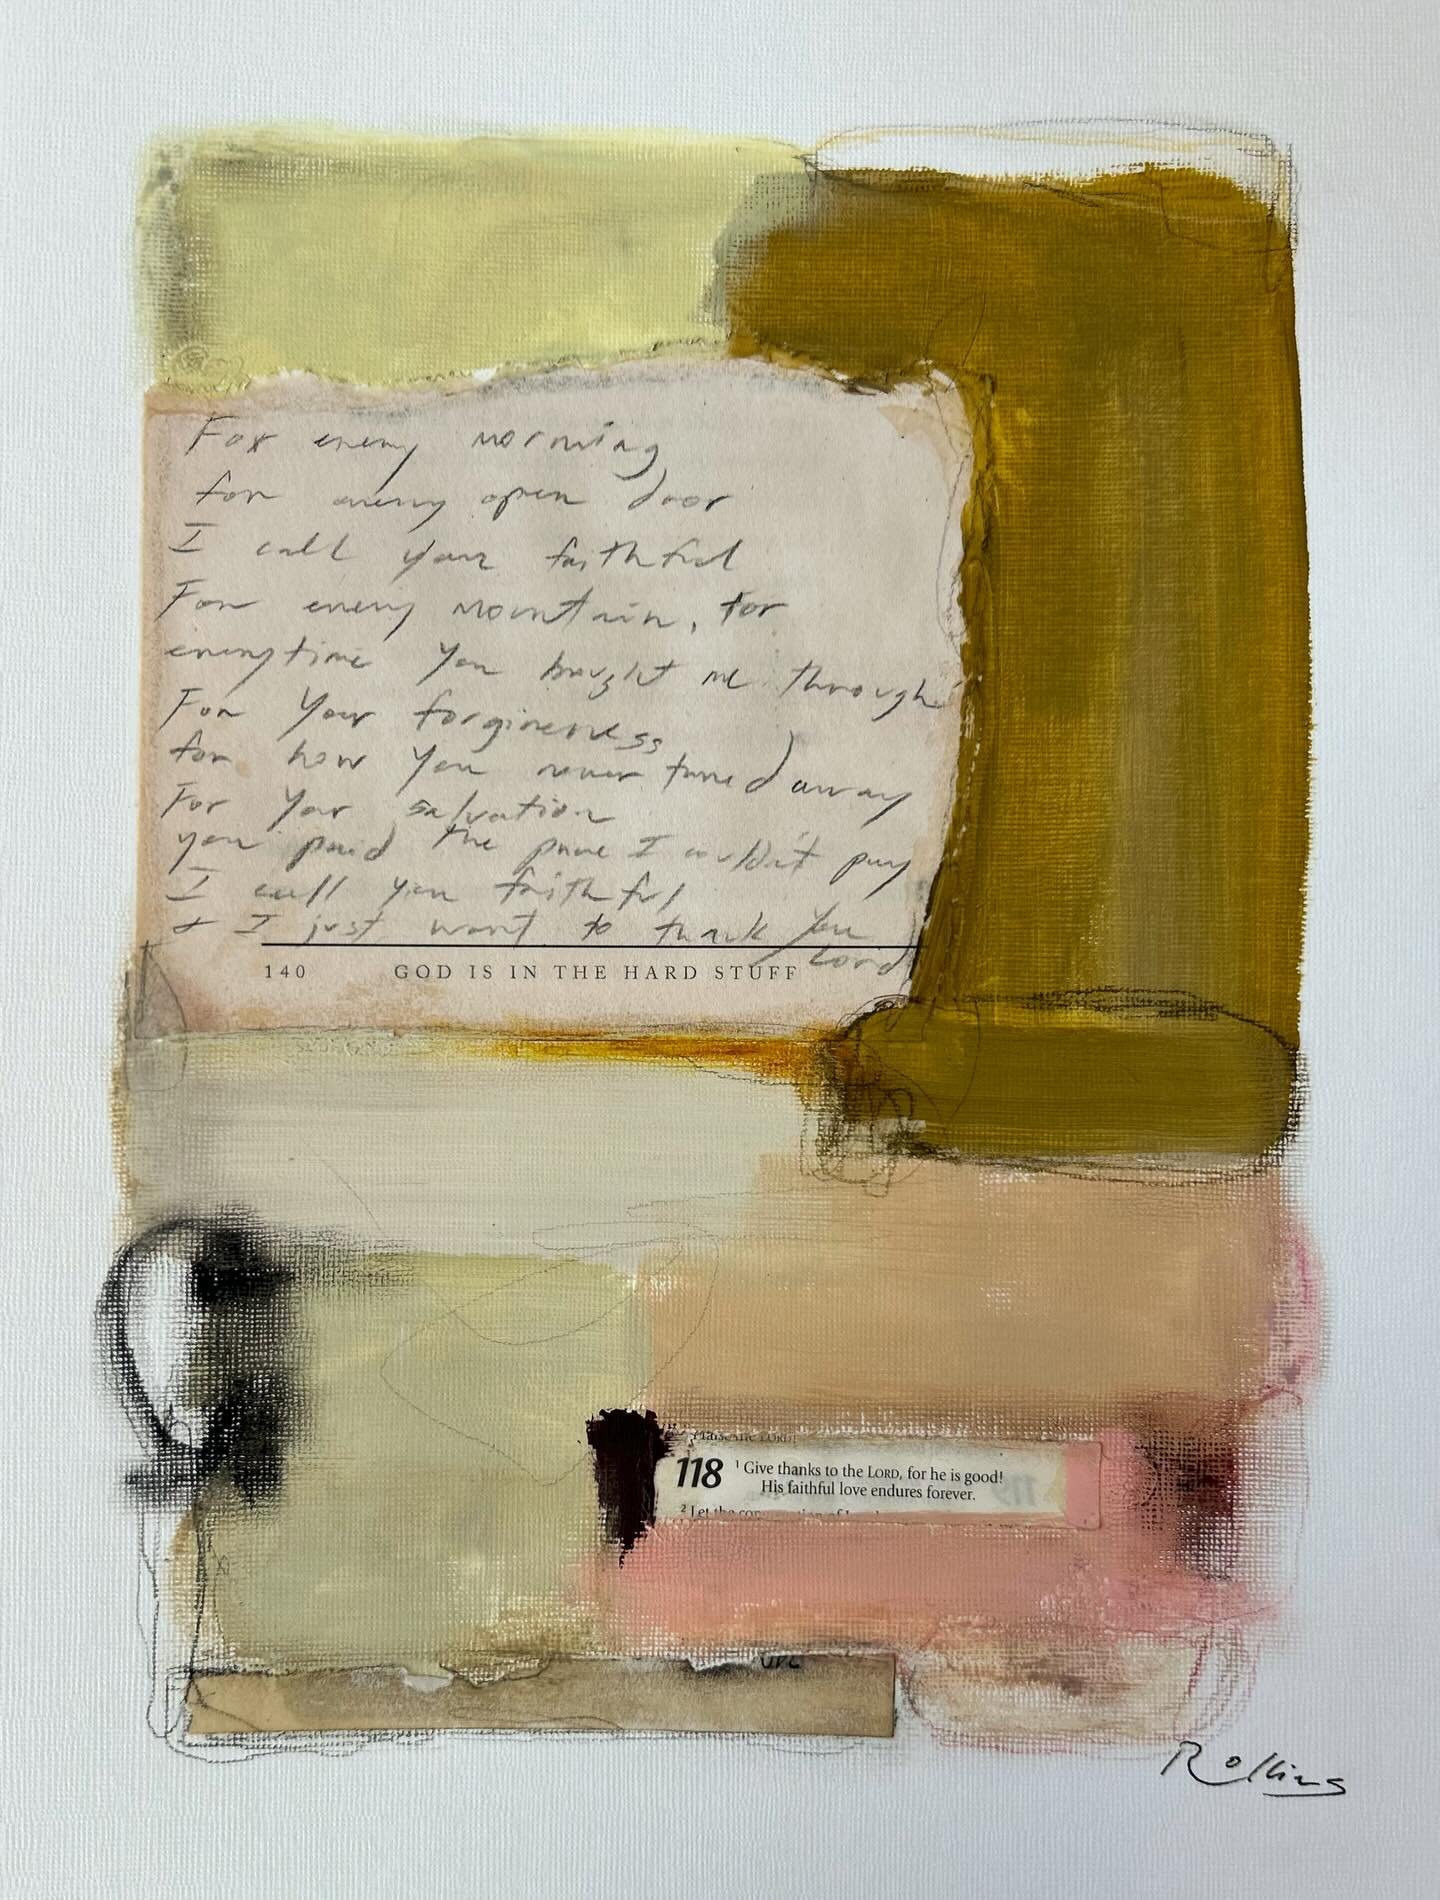 For every morning
for every open door
I call you faithful
For every mountain, for
everytime You brought me through
For Your forgiveness
for how You never turned away
For Your salvation
you paid the price I couldn't pay
I call you faithful
& I just want to thank You
Lord
140 GOD IS IN THE HARD STUFF
Praise the LORD!
118 1 Give thanks to the LORD, for he is good!
His faithful love endures forever.
2 Let the
Rollins